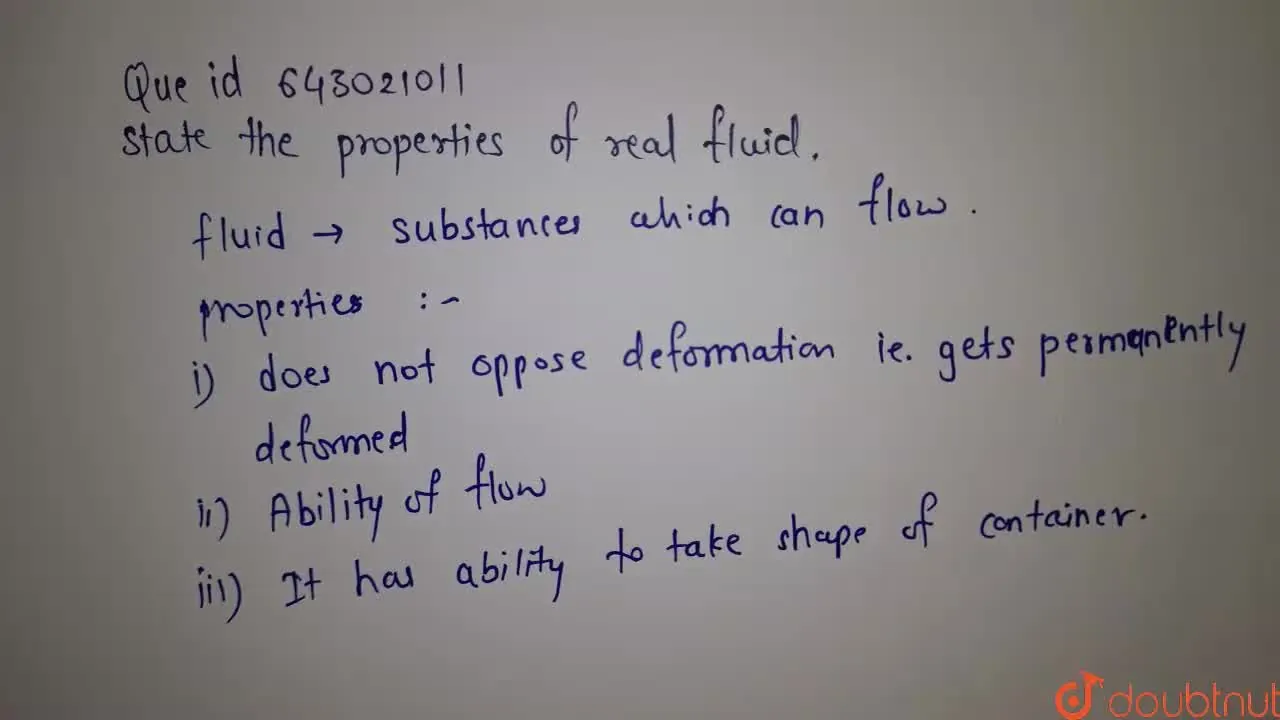 Que id 643021011
state the properties of real fluid.
fluid → substances which can flow.
properties :-
i) does not oppose deformation ie. gets permanently
deformed
ii) Ability of flow
iii) It has ability to take shape of container.
doubtnut